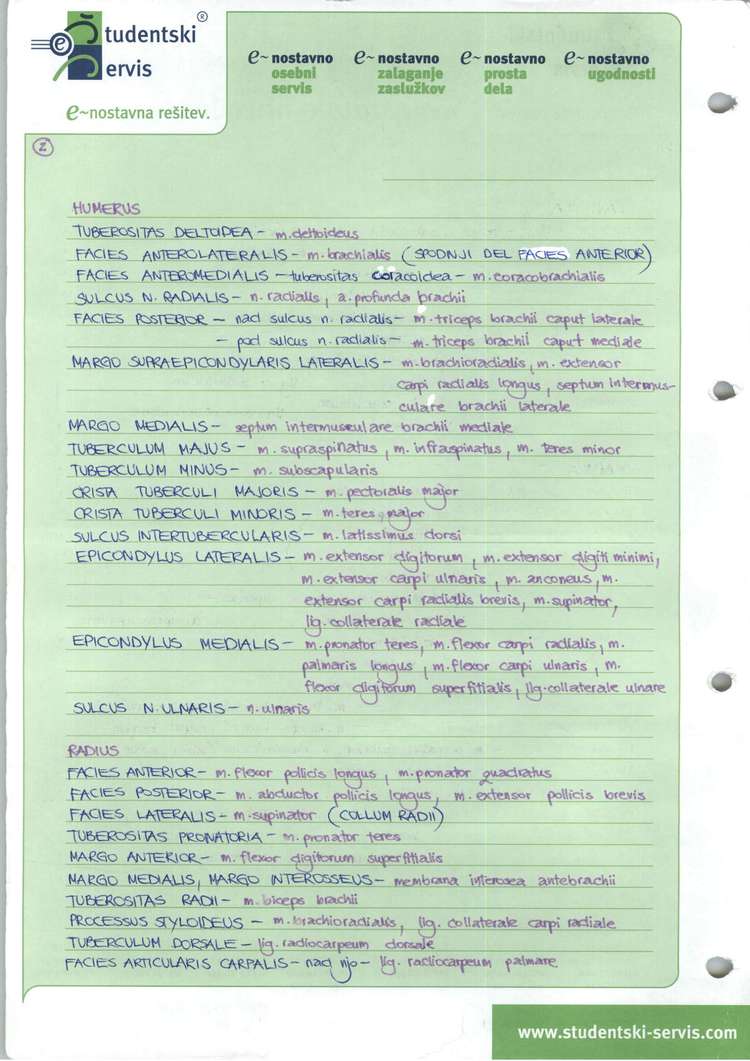 Študentski
®
Servis
e~nostavna rešitev.
e~nostavno osebni servis
e~nostavno zalaganje zaslužkov
e~nostavno prosta dela
e~nostavno ugodnosti
2
HUMERUS
TUBEROSITAS DELTOIDEA - m. deltoideus
FACIES ANTEROLATERALIS - m. brachialis (SPODNJI DEL FACIES ANTERIOR)
FACIES ANTEROMEDIALIS - tuberositas coracoidea - m. coracobrachialis
SULCUS N. RADIALIS - n. radialis, a. profunda brachii
FACIES POSTERIOR - nad sulcus n. radialis - m. triceps brachii caput laterale
- pod sulcus n. radialis - m. triceps brachii caput mediale
MARGO SUPRAEPICONDYLARIS LATERALIS - m. brachioradialis, m. extensor
carpi radialis longus, septum intermus-
culare brachii laterale
MARGO MEDIALIS - septum intermusculare brachii mediale
TUBERCULUM MAJUS - m. supraspinatus, m. infraspinatus, m. teres minor
TUBERCULUM MINUS - m. subscapularis
CRISTA TUBERCULI MAJORIS - m. pectoralis major
CRISTA TUBERCULI MINORIS - m. teres major
SULCUS INTERTUBERCULARIS - m. latissimus dorsi
EPICONDYLUS LATERALIS - m. extensor digitorum, m. extensor digiti minimi,
m. extensor carpi ulnaris, m. anconeus, m.
extensor carpi radialis brevis, m. supinator,
lig. collaterale radiale
EPICONDYLUS MEDIALIS - m. pronator teres, m. flexor carpi radialis, m.
palmaris longus, m. flexor carpi ulnaris, m.
flexor digitorum superfitialis, lig. collaterale ulnare
SULCUS N. ULNARIS - n. ulnaris
RADIUS
FACIES ANTERIOR - m. flexor pollicis longus, m. pronator quadratus
FACIES POSTERIOR - m. abductor pollicis longus, m. extensor pollicis brevis
FACIES LATERALIS - m. supinator (COLLUM RADII)
TUBEROSITAS PRONATORIA - m. pronator teres
MARGO ANTERIOR - m. flexor digitorum superfitialis
MARGO MEDIALIS, MARGO INTEROSSEUS - membrana interosea antebrachii
TUBEROSITAS RADII - m. biceps brachii
PROCESSUS STYLOIDEUS - m. brachioradialis, lig. collaterale carpi radiale
TUBERCULUM DORSALE - lig. radiocarpeum dorsale
FACIES ARTICULARIS CARPALIS - nad njo - lig. radiocarpeum palmare
www.studentski-servis.com